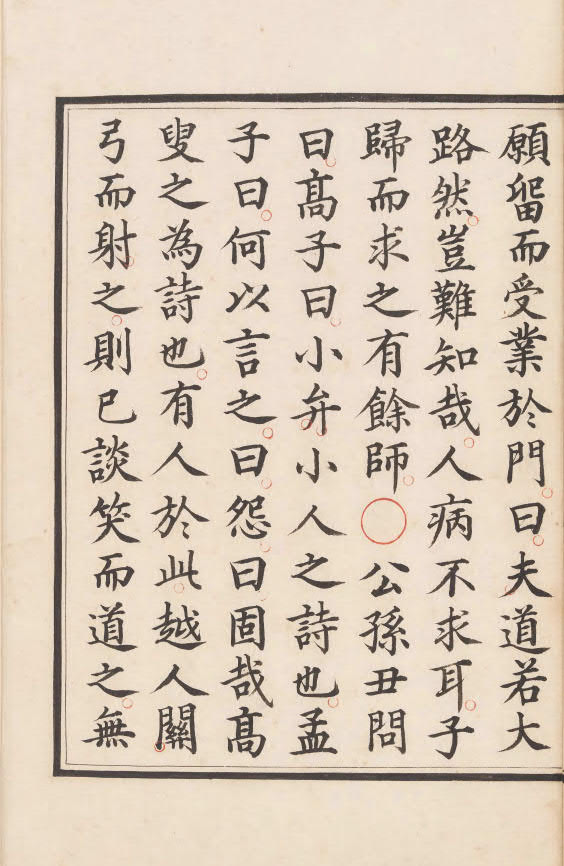 願留而受業於門曰夫道若大
路然豈難知哉人病不求耳子
歸而求之有餘師○公孫丑問
曰髙子曰小弁小人之詩也孟
子曰何以言之曰怨曰固哉髙
叟之為詩也有人於此越人關
弓而射之則已談笑而道之無